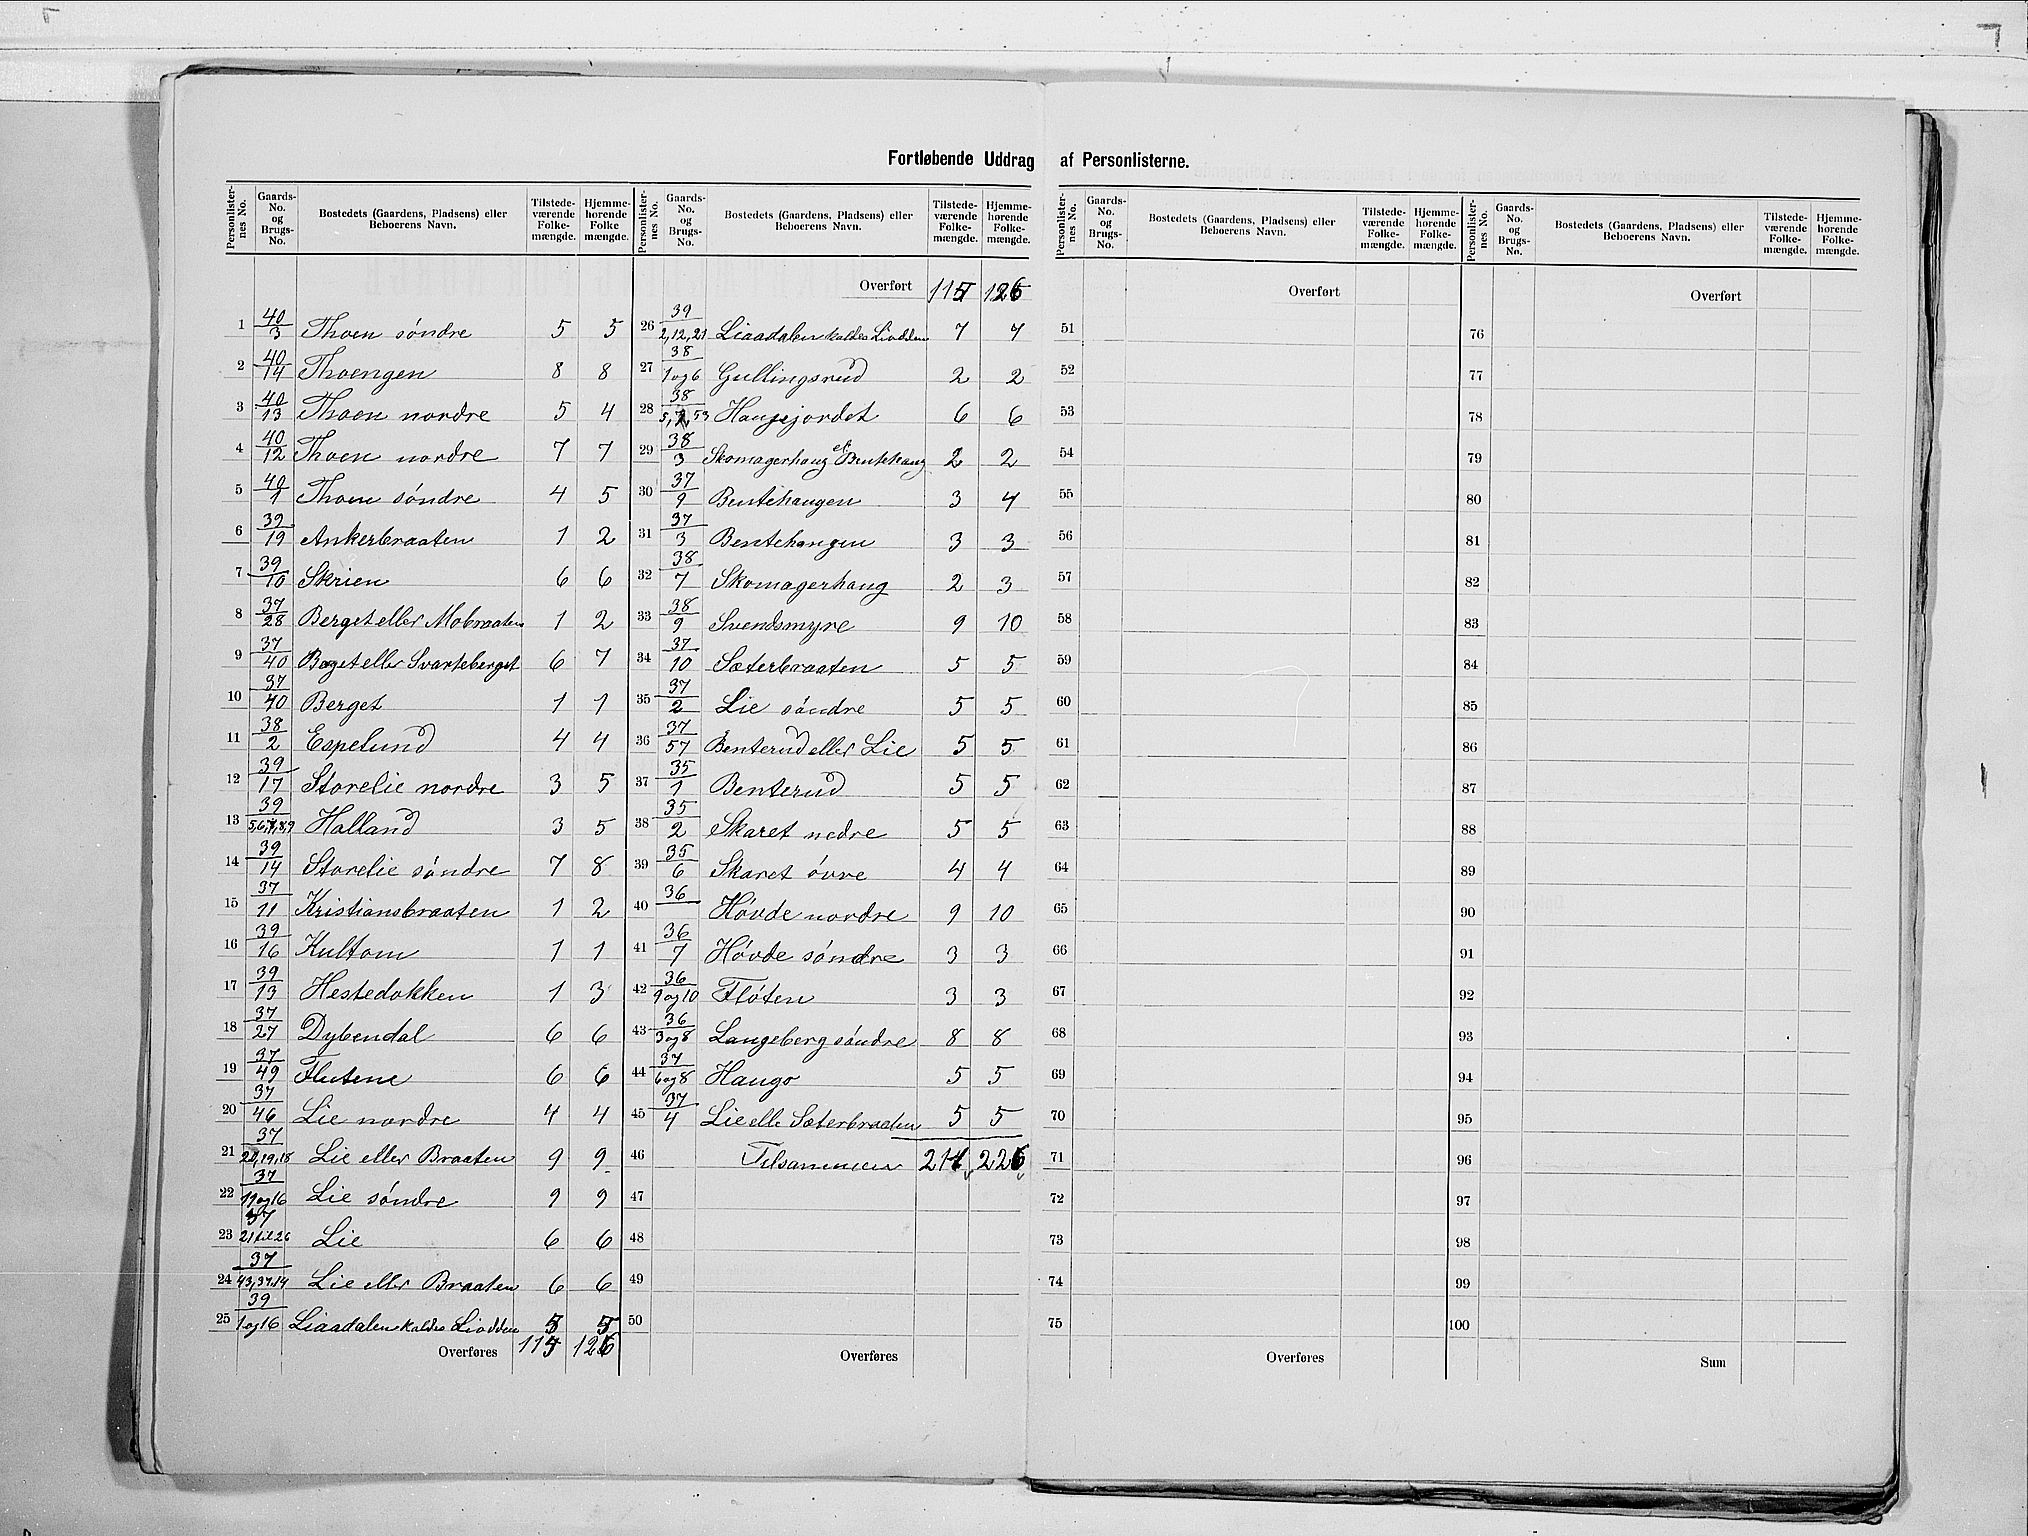 Fortløbende Uddrag af Personlisterne.
Personlister-nes No. | Gaards-No. og Brugs-No. | Bostedets (Gaardens, Pladsens) eller Beboerens Navn. | Tilstede-værende Folke-mængde. | Hjemme-hørende Folke mængde.
1 40/3 Thoen søndre 5 5
2 40/14 Thoengen 8 8
3 40/13 Thoen nordre 5 4
4 40/12 Thoen nordre 7 7
5 40/1 Thoen søndre 4 5
6 39/19 Ankerbraaten 1 2
7 39/10 Skrien 6 6
8 37/28 Berget eller Mobraaten 1 2
9 37/40 Bøget eller Svarteberget 6 7
10 37/40 Berget 1 1
11 38/2 Espelund 4 4
12 39/17 Storelie nordre 3 5
13 39/5,6,7,8,9 Holland 3 5
14 39/14 Storelie søndre 7 8
15 37/11 Kristiansbraaten 1 2
16 39/16 Kultom 1 1
17 39/13 Hestedokken 1 3
18 37/27 Dybendal 6 6
19 37/49 Flutene 6 6
20 37/46 Lie nordre 4 4
21 37/20,19,18 Lie eller Braaten 9 9
22 37/19og16 Lie søndre 9 9
23 37/21til26 Lie 6 6
24 37/43,37,14 Lie eller Braaten 6 6
25 39/1og16 Liaadalen kaldes Liodden 5 5
Overføres 115 126
Personlister-nes No. | Gaards-No. og Brugs-No. | Bostedets (Gaardens, Pladsens) eller Beboerens Navn. | Tilstede-værende Folke-mængde. | Hjemme-hørende Folke-mængde.
Overført 115 126
26 39/2,12,21 Liaadalen kaldes Liodden 7 7
27 38/1og6 Gullingsrud 2 2
28 38/5, 53 Haugejordet 6 6
29 38/3 Skomagerhaug el Bentehaug 2 2
30 37/9 Bentehaugen 3 4
31 37/3 Bentehaugen 3 3
32 38/7 Skomagerhaug 2 3
33 38/9 Svendsmyre 9 10
34 37/10 Sæterbraaten 5 5
35 37/2 Lie søndre 5 5
36 37/57 Benterud eller Lie 5 5
37 35/1 Benterud 5 5
38 35/2 Skaret nedre 5 5
39 35/6 Skaret øvre 4 4
40 36 Høvde nordre 9 10
41 36/7 Høvde søndre 3 3
42 36/9og10 Fløten 3 3
43 36/3og8 Langeberg søndre 8 8
44 37/6og8 Haugo 5 5
45 37/4 Lie elle Sæterbraaten 5 5
46 Tilsammen 217 226
47
48
49
50
Overføres
Personlister-nes No. | Gaards-No. og Brugs-No. | Bostedets (Gaardens, Pladsens) eller Beboerens Navn. | Tilstede-værende Folke-mængde. | Hjemme-hørende Folke-mængde.
Overført
51
52
53
54
55
56
57
58
59
60
61
62
63
64
65
66
67
68
69
70
71
72
73
74
75
Overføres
Personlister-nes No. | Gaards-No. og Brugs-No. | Bostedets (Gaardens, Pladsens) eller Beboerens Navn. | Tilstede-værende Folke-mængde. | Hjemme-hørende Folke-mængde.
Overført
76
77
78
79
80
81
82
83
84
85
86
87
88
89
90
91
92
93
94
95
96
97
98
99
100
Sum